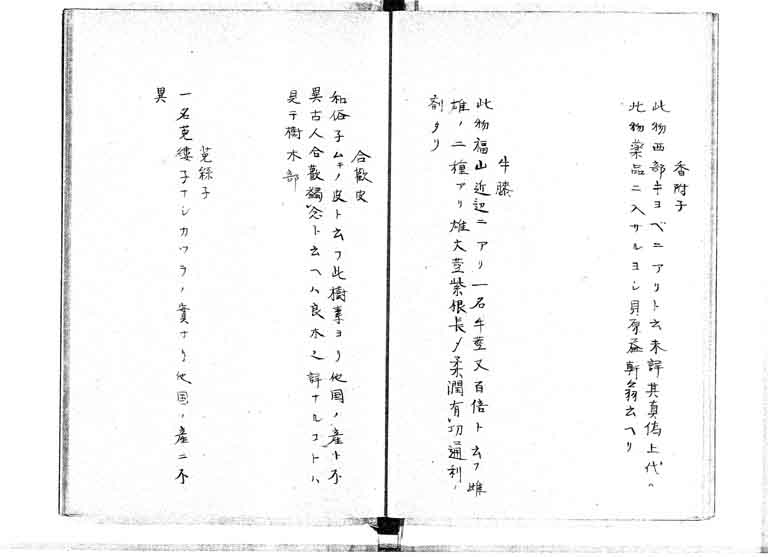 香附子
此物西部キヨベニアリト云未詳其真偽上代ハ
此物薬品ニ入サルヨシ貝原益軒翁云ヘリ
牛膝
此物福山近辺ニアリ一名牛莖又百倍ト云フ雌
雄ノ二種アリ雄大莖紫根長〆柔潤有功通利ノ
剤タリ
合歡皮
和俗子ムキノ皮ト云フ此樹事ヨリ他国ノ産ト不
異古人合歡蠲忿ト云ヘハ良木之詳ナルコトハ
見于樹木部
菟絲子
一名菟縷子ナシカツラノ實ナリ他国ノ産ニ不
異